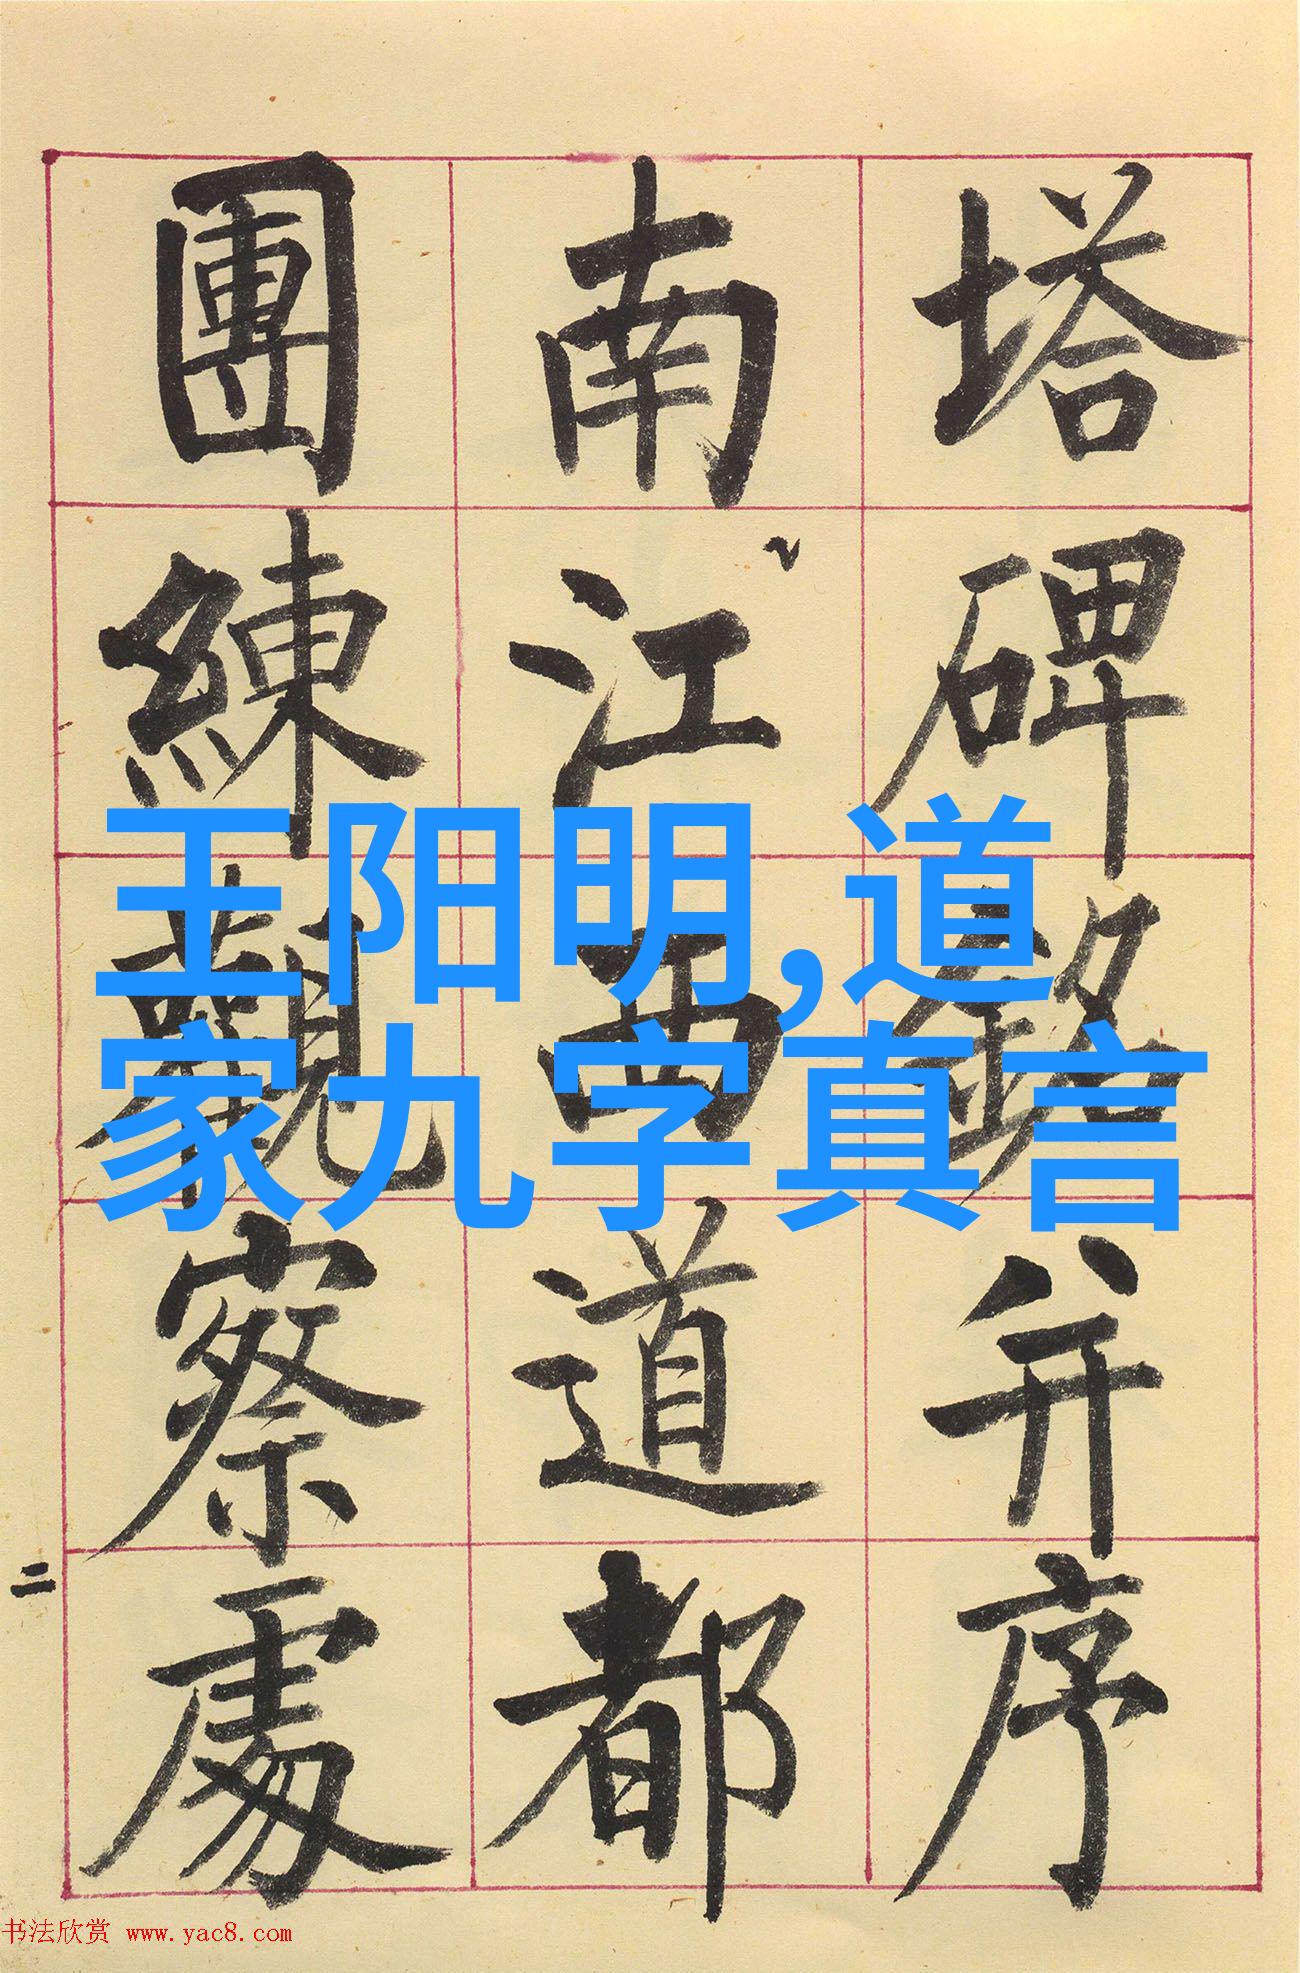 塔碑銘并序
南江西道都
團練觀察處
王阳明,道
家九字真言
二
书法欣赏 www.yac8.com